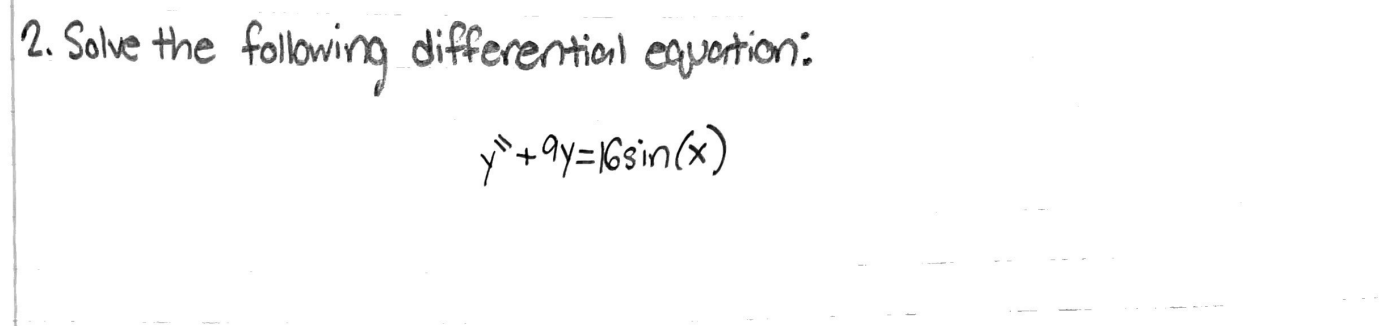 2. Solve the following differential equation:
y"+9y=16sin(x)